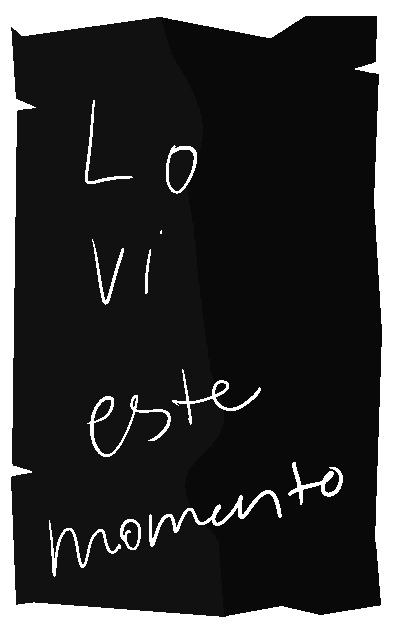 Lo
vi
este
momento